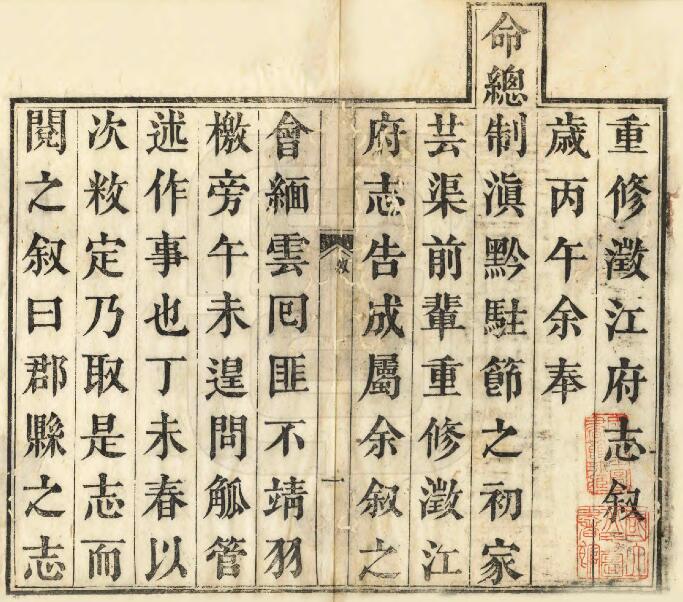 重修澂江府志叙
歲丙午余奉
命總制滇黔駐節之初家
芸渠前輩重修澂江
府志告成屬余叙之
叙
一
會緬雲囘匪不靖羽
檄旁午未遑問觚管
述作事也丁未春以
次敉定乃取是志而
閱之叙曰郡縣之志